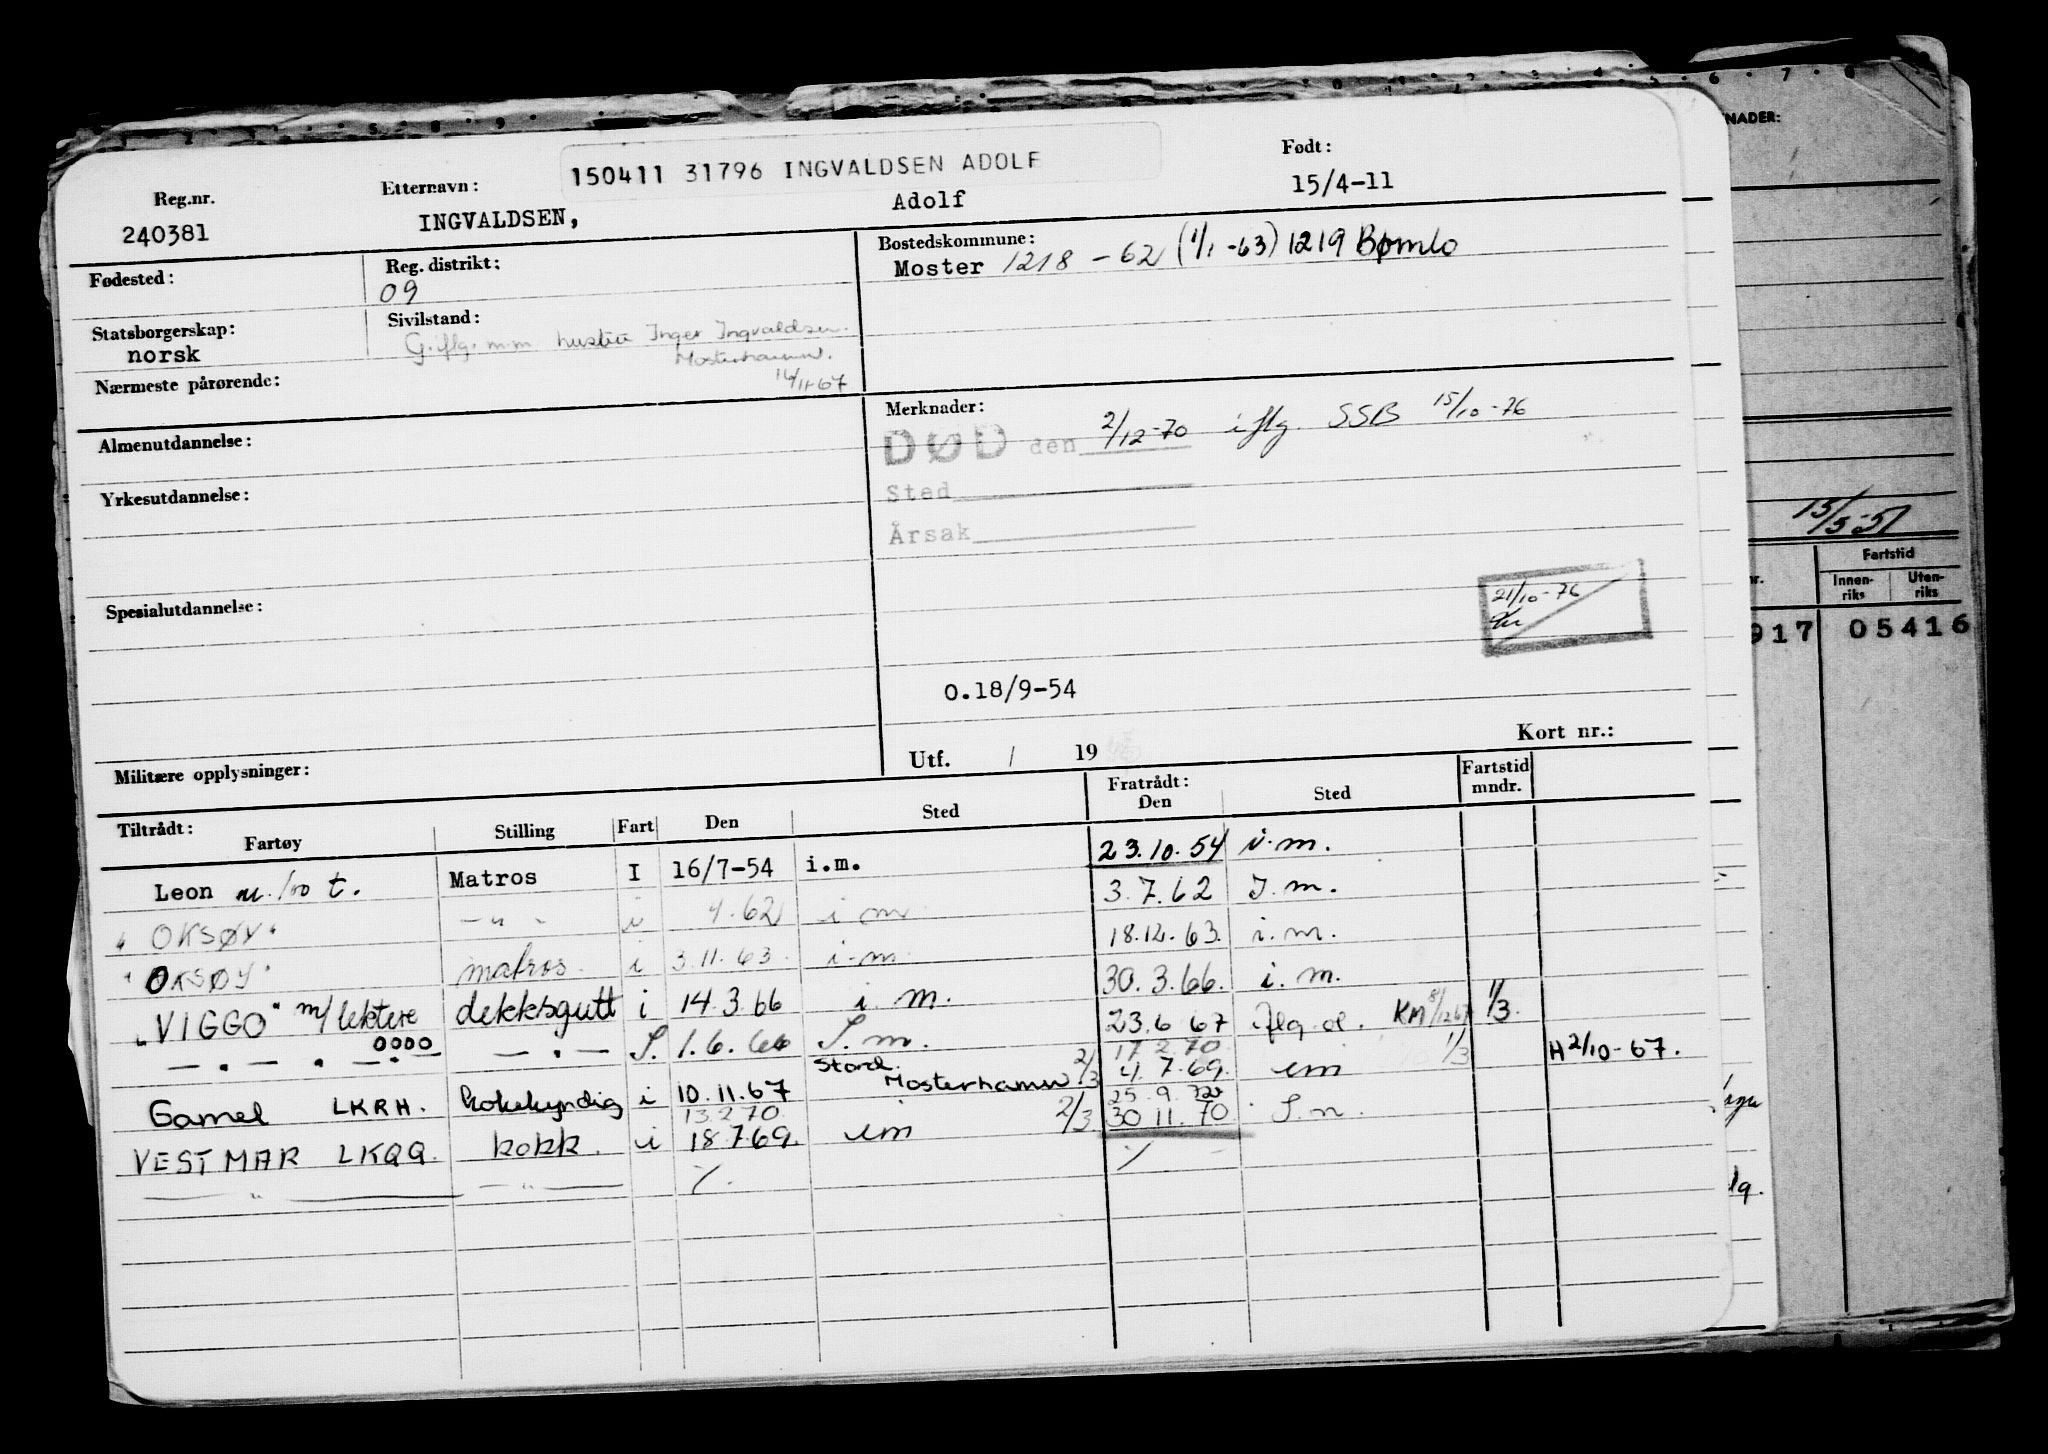 150411 31796 INGVALDSEN ADOLF
Reg.nr. Etternavn: Født:
240381 INGVALDSEN, Adolf 15/4-11
Fødested: Reg. distrikt: Bostedskommune:
09 Moster 1218 - 62 (1/1 -63) 1219 Bømlo
Statsborgerskap: Sivilstand:
norsk G. iflg. m.m hustru Inger Ingvaldsen.
Mosterhamn.
Nærmeste pårørende: 16/11-67
Almenutdannelse: Merknader:
DØD den 2/12-70 iflg. SSB 15/10-76
Yrkesutdannelse: Sted
Årsak
Spesialutdannelse: 21/10-76
O.18/9-54
Militære opplysninger: Utf. / 19 Kort nr.:
Tiltrådt: Fratrådt: Fartstid
Fartøy Stilling Fart Den Sted Den Sted mndr.
Leon u. 100 t. Matros I 16/7-54 i.m. 23.10.54 i.m.
" OKSØY " - " - i 4.62 i m 3.7.62 I.m.
" OKSØY " matros. i 3.11.63. i.m. 18.12.63. i.m.
"VIGGO" m/lektere dekksgutt i 14.3.66 i.m. 30.3.66. i.m.
0000
— " — " — " — — " — S. 1.6.66 S.m. 23.6.67 iflg. KM 8/12 67 1/3.
Gamel LKRH. kokekyndig i 10.11.67 Stord Mosterhamn 2/3 17.2.70 4.7.69. um 1/3 H 2/10-67.
VESTMAR LKQQ. kokk. i 13.2.70 18.7.69. um 2/3 25.9.70 30.11.70 S.m.
— " — — " — ٪. ٪
NADER:
15/5-51
nr. Fartstid
Innen-riks Uten-riks
917 05416